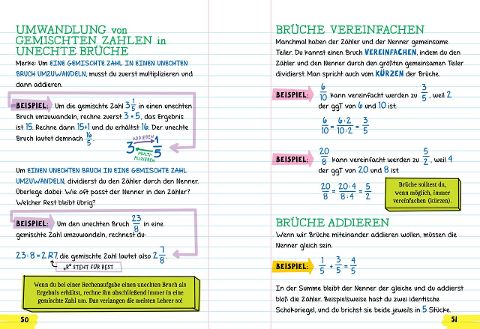 UMWANDLUNG von
GEMISCHTEN ZAHLEN in
UNECHTE BRÜCHE
Merke: Um EINE GEMISCHTE ZAHL IN EINEN UNECHTEN
BRUCH UMZUWANDELN, musst du zuerst multiplizieren und
dann addieren.
BEISPIEL: Um die gemischte Zahl 3 1/5 in einen unechten
Bruch umzuwandeln, rechne zuerst 3 • 5, das Ergebnis
ist 15. Rechne dann 15+1 und du erhältst 16. Der unechte
Bruch lautet demnach 16/5.
ADDIEREN
3 1/5
MULTI-
PLIZIEREN
Um EINEN UNECHTEN BRUCH IN EINE GEMISCHTE ZAHL
UMZUWANDELN, dividierst du den Zähler durch den Nenner.
Überlege dabei: Wie oft passt der Nenner in den Zähler?
Welcher Rest bleibt übrig?
BEISPIEL: Um den unechten Bruch 23/8 in eine
gemischte Zahl umzuwandeln, rechnest du
23:8 = 2 R7, die gemischte Zahl lautet also 2 7/8
„R" STEHT FÜR REST
Wenn du bei einer Rechenaufgabe einen unechten Bruch als
Ergebnis erhältst, rechne ihn abschließend immer in eine
gemischte Zahl um. Das verlangen die meisten Lehrer so!
50
BRÜCHE VEREINFACHEN
Manchmal haben der Zähler und der Nenner gemeinsame
Teiler. Du kannst einen Bruch VEREINFACHEN, indem du den
Zähler und den Nenner durch den größten gemeinsamen Teiler
dividierst. Man spricht auch vom KÜRZEN der Brüche.
BEISPIEL: 6/10 kann vereinfacht werden zu 3/5, weil 2
der ggT von 6 und 10 ist
6/10 = 6:2/10:2 = 3/5
BEISPIEL: 20/8 kann vereinfacht werden zu 5/2, weil 4
der ggT von 20 und 8 ist
20/8 = 20:4/8:4 = 5/2
Brüche solltest du,
wenn möglich, immer
vereinfachen (kürzen).
BRÜCHE ADDIEREN
Wenn wir Brüche miteinander addieren wollen, müssen die
Nenner gleich sein.
BEISPIEL: 1/5 + 3/5 = 4/5
In der Summe bleibt der Nenner der gleiche und du addierst
bloß die Zähler. Beispielsweise hast du zwei identische
Schokoriegel, und du brichst sie beide jeweils in 5 Stücke.
51